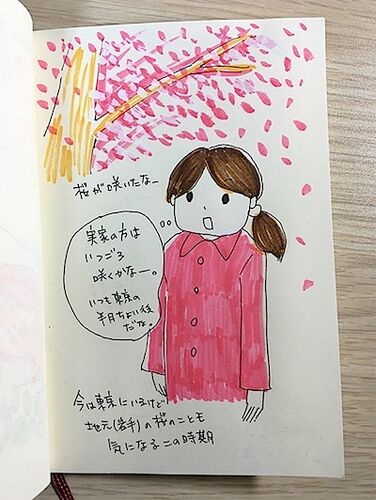 桜が咲いたなー
実家の方は
いつごろ
咲くかなー。
いつも東京の
半月ちょい後
だな。
今は東京にいるけど
地元(岩手)の桜のことも
気になるこの時期